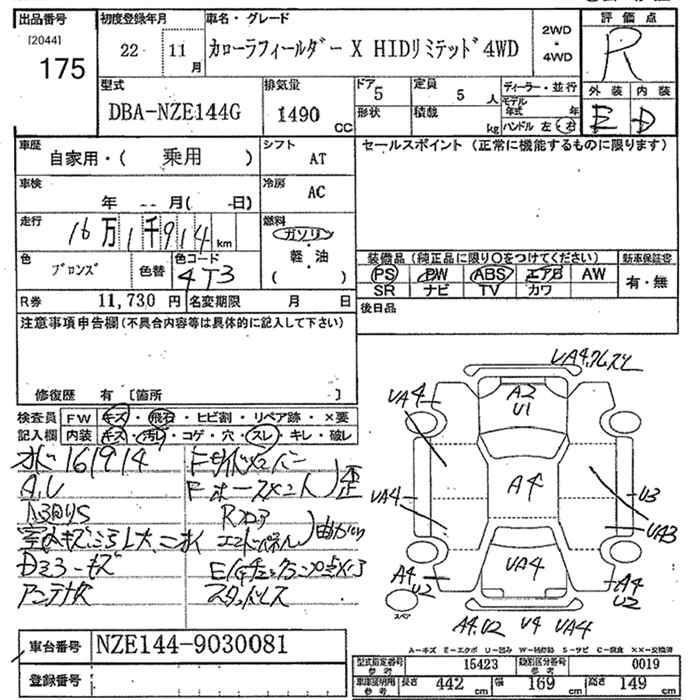 出品番号 初度登録年月 車名・グレード 評価点
[2044]
175
22 11月
カローラフィールダー X HIDリミテッド 4WD
2WD
・
4WD
R
型式 排気量 ドア 定員 ディーラー・並行 外装 内装
DBA-NZE144G 1490 CC 5 5 人
形状 積載 kg
モデル年式 年
ハンドル 左・右
E D
車歴 自家用・( 乗用 ) シフト AT
セールスポイント (正常に機能するものに限ります)
車検 年 月( 日) 冷房 AC
走行 16万1千914 km
燃料 ガソリン
軽・油
( )
色 ブロンズ 色替 色コード 4T3
装備品 (純正品に限り○をつけてください) 新車保証書
PS PW ABS エアB AW 有・無
SR ナビ TV カワ
R券 11,730 円 名変期限 月 日
後日品
注意事項申告欄 (不具合内容等は具体的に記入して下さい)
修復歴 有 [箇所 ]
検査員 FW キズ・飛石・ヒビ割・リペア跡・×要
記入欄 内装 キズ・汚レ・コゲ・穴・スレ・キレ・破レ
メーター 161914
室内キズ
アンテナ欠
スタッドレス
UA4
UA4
A2
U1
A4
UA4
UA4
U3
UA3
A4
U2
A4
U2
スペア
A4.U2 U4 UA4
A-キズ E-エクボ U-凹み W-補修跡 S-サビ C-腐食 ××-交換済
車台番号 NZE144-9030081
登録番号
型式指定番号 参考 15423 類別区分番号 参考 0019
車庫証明用 参考 長さ 442 cm 幅 169 cm 高さ 149 cm